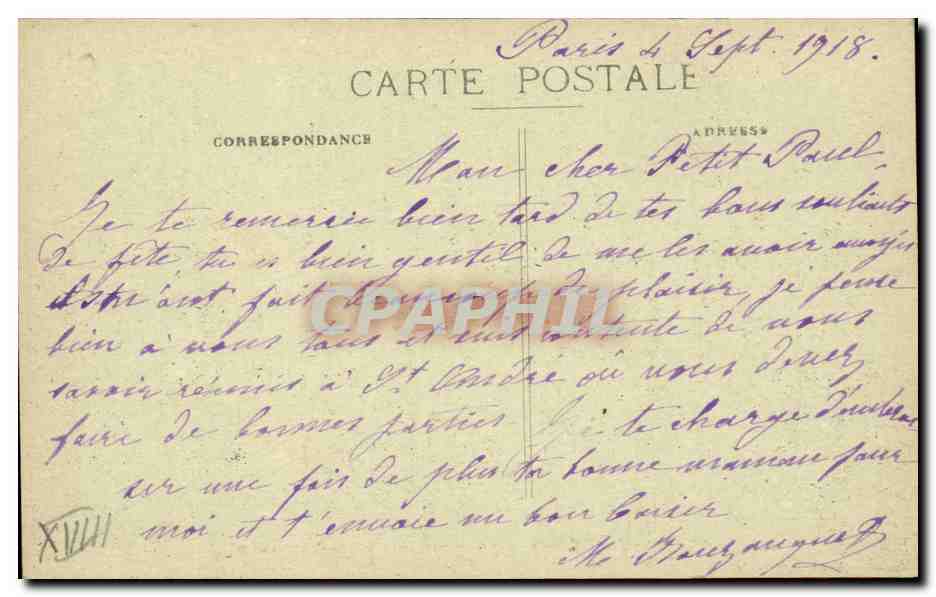 Paris 4 Sept. 1918.
CARTE POSTALE
CORRESPONDANCE
ADRESSE
Mon cher Petit Paul,
Je te remercie bien tard de tes bons souhaits
de fête tu es bien gentil de me les avoir envoyés
ils m'ont fait beaucoup de plaisir, je pense
bien à vous tous et suis contente de vous
savoir réunis à St André où vous devez
faire de bonnes parties Je te charge d'embras
ser une fois de plus ta bonne maman pour
moi et t'envoie un bon baiser
M
XVIIII
CPAPHIL